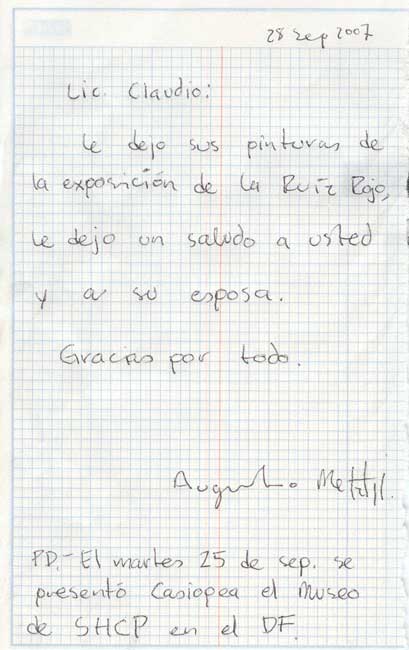 28 Sep 2007
Lic. Claudio:
Le dejo sus pinturas de
la exposición de la Ruíz Rojo,
le dejo un saludo a usted
y a su esposa.
Gracias por todo.
Augusto
PD.- El martes 25 de sep. se
presentó Casiopea el Museo
de SHCP en el DF.